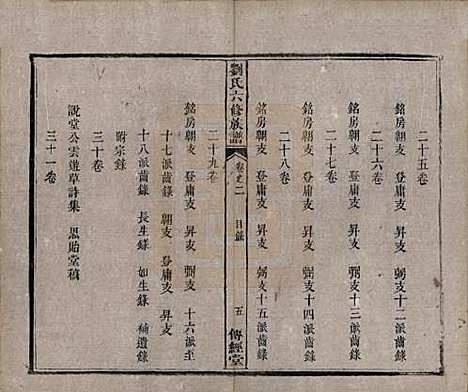 二十五卷
銘房朝支 登庸支 昇支 弼支十二派齒錄
二十六卷
銘房朝支 登庸支 昇支 弼支十三派齒錄
二十七卷
銘房朝支 登庸支 昇支 弼支十四派齒錄
二十八卷
銘房朝支 登庸支 昇支 弼支十五派齒錄
劉氏六修族譜 卷首二 目錄 五 傳經堂
二十九卷
銘房朝支 登庸支 昇支 弼支十六派至
十七派齒錄 朝支 登庸支 昇支
十八派齒錄 長生錄 如生錄 補遺錄
附宗錄
三十卷
說堂公雲遊草詩集 恩貽堂稿
三十一卷